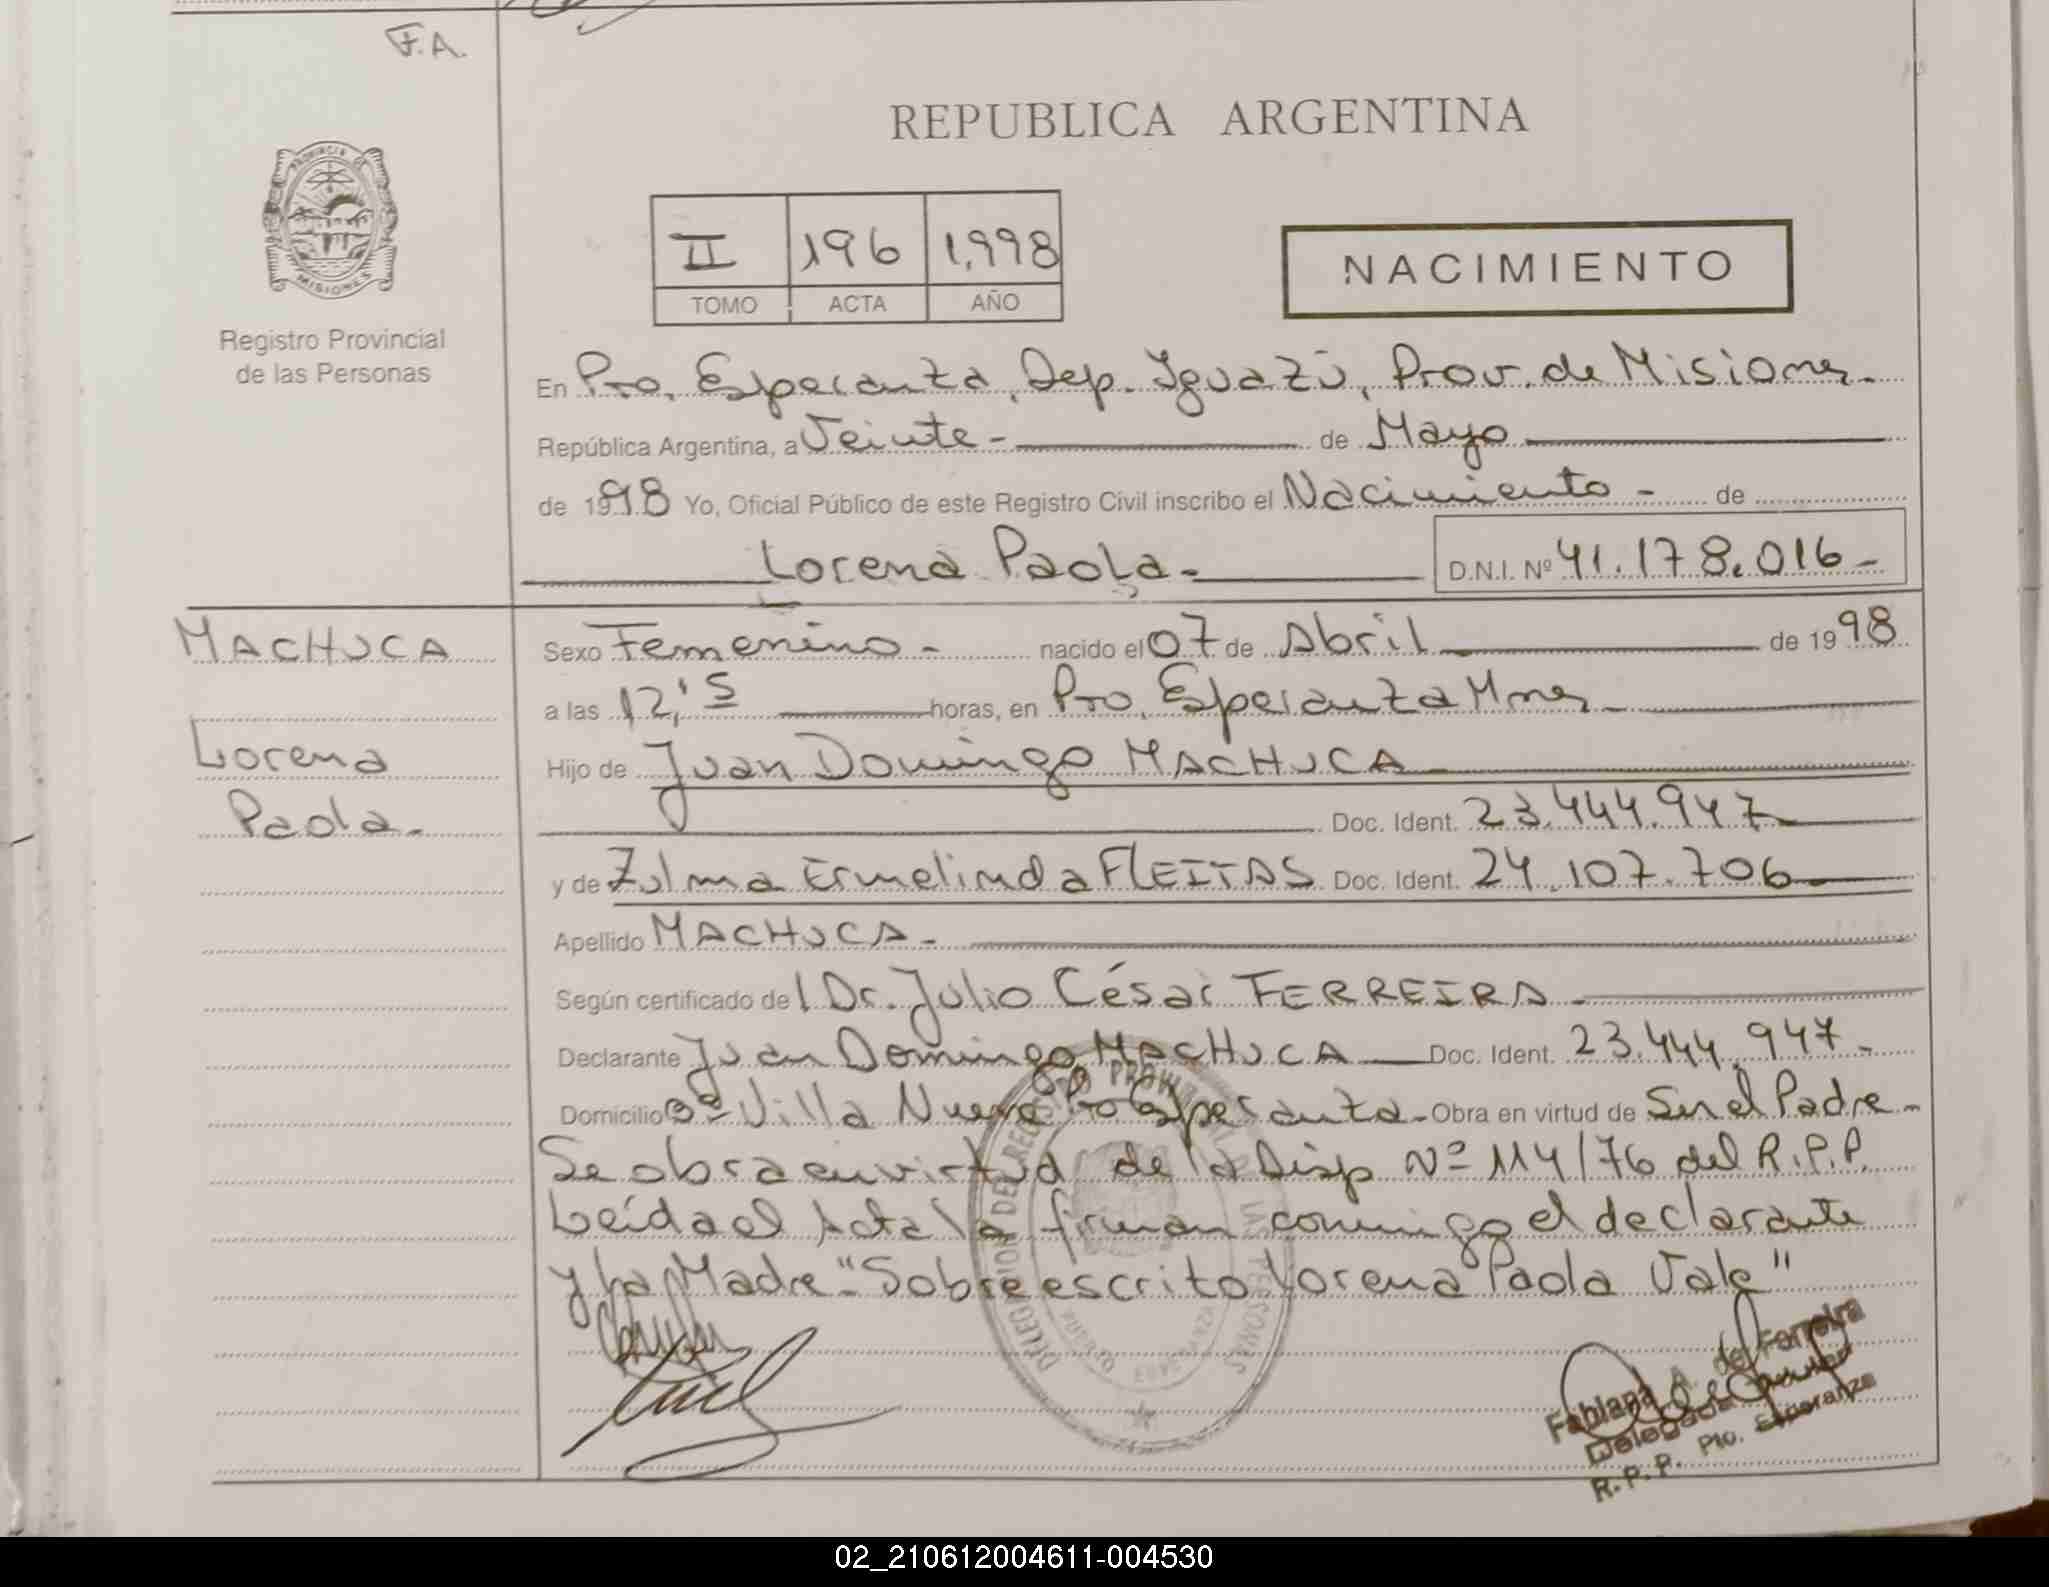 F.A.
REPUBLICA ARGENTINA
PROVINCIA DE
MISIONES
II 196 1.998
TOMO ACTA AÑO
NACIMIENTO
Registro Provincial
de las Personas
En Pto. Esperanza, Dep. Iguazú, Prov. de Misiones.
República Argentina, a Veinte - de Mayo
de 1998 Yo, Oficial Público de este Registro Civil inscribo el Nacimiento - de
Lorena Paola - D.N.I. Nº 41.178.016 -
MACHUCA
Lorena
Paola -
Sexo Femenino - nacido el 07 de Abril de 1998
a las 12,15 horas, en Pto. Esperanza Mnes -
Hijo de Juan Domingo MACHUCA
Doc. Ident. 23.444.947
y de Zulma Ermelinda FLEITAS Doc. Ident. 24.107.706
Apellido MACHUCA -
Según certificado del Dr. Julio César FERREIRA -
Declarante Juan Domingo MACHUCA Doc. Ident. 23.444.947 -
Domicilio Bº Villa Nueva Pto Esperanza - Obra en virtud de Ser el Padre -
Se obra en virtud de la Disp Nº 114/76 del R.P.P.
Leída el Acta la firman conmigo el declarante
y la Madre - "Sobreescrito Lorena Paola Vale"
DELEGACION DEL REGISTRO PROVINCIAL DE LAS PERSONAS
PUERTO ESPERANZA
Fabiana A. de Ferreira
Delegada
R.P.P. Pto. Esperanza
02_210612004611-004530